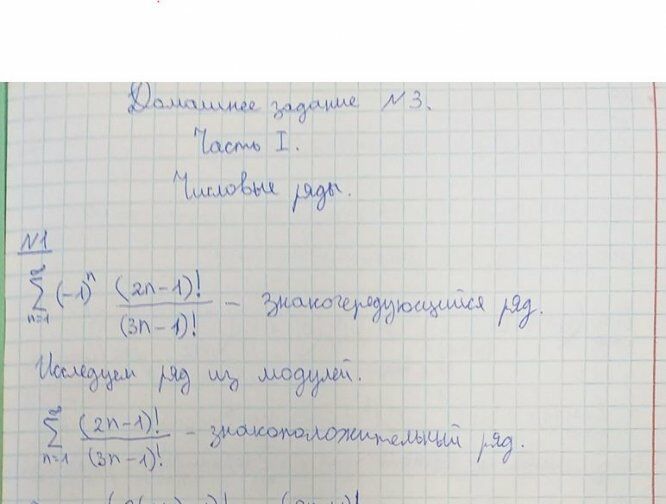 Домашнее задание №3.
Часть I.
Числовые ряды.
№1
∞∑n=1 (-1)^n (2n-1)!/(3n-1)! - знакочередующийся ряд.
Исследуем ряд из модулей.
∞∑n=1 (2n-1)!/(3n-1)! - знакоположительный ряд.